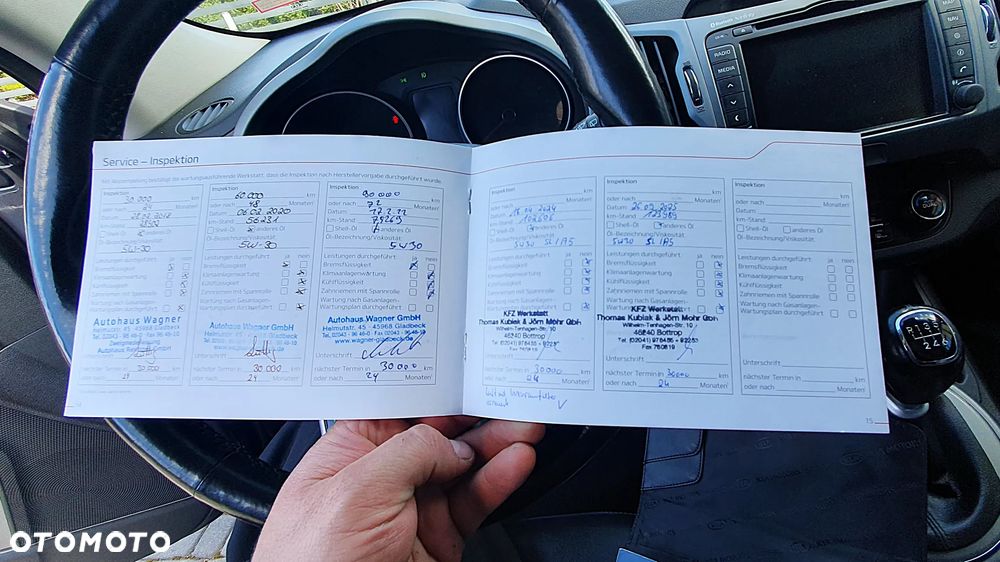 Service – Inspektion
Mit Abstempelung bestätigt die wartungsausführende Werkstatt, dass die Inspektion nach Herstellervorgabe durchgeführt wurde.
Inspektion
30.000 km
oder nach Monaten
Datum
km-Stand
Shell-Öl anderes Öl
Öl-Bezeichnung/Viskosität
5W-30
Leistungen durchgeführt ja nein
Bremsflüssigkeit
Klimaanlagenwartung
Kühlflüssigkeit
Zahnriemen mit Spannrolle
Wartung nach Gasanlagen-
Wartungsplan durchgeführt
Autohaus Wagner
Helmutstr. 45 - 45968 Gladbeck
Unterschrift
nächster Termin in 30.000 km
oder nach 24 Monaten
Inspektion
60.000 km
oder nach 48 Monaten
Datum 06.02.2020
km-Stand 56231
Shell-Öl anderes Öl
Öl-Bezeichnung/Viskosität
5W-30
Leistungen durchgeführt ja nein
Bremsflüssigkeit
Klimaanlagenwartung
Kühlflüssigkeit
Zahnriemen mit Spannrolle
Wartung nach Gasanlagen-
Wartungsplan durchgeführt
Autohaus Wagner GmbH
Helmutstr. 45 - 45968 Gladbeck
www.wagner-gladbeck.de
Unterschrift
nächster Termin in 30.000 km
oder nach 24 Monaten
Inspektion
90000 km
oder nach 72 Monaten
Datum 17.2.22
km-Stand 79269
Shell-Öl anderes Öl
Öl-Bezeichnung/Viskosität
5W30
Leistungen durchgeführt ja nein
Bremsflüssigkeit
Klimaanlagenwartung
Kühlflüssigkeit
Zahnriemen mit Spannrolle
Wartung nach Gasanlagen-
Wartungsplan durchgeführt
Autohaus Wagner GmbH
Helmutstr. 45 - 45968 Gladbeck
www.wagner-gladbeck.de
Unterschrift
nächster Termin in 30000 km
oder nach 24 Monaten
Inspektion
km
oder nach Monaten
Datum
km-Stand
Shell-Öl anderes Öl
Öl-Bezeichnung/Viskosität
5W30 SL/A5
Leistungen durchgeführt ja nein
Bremsflüssigkeit
Klimaanlagenwartung
Kühlflüssigkeit
Zahnriemen mit Spannrolle
Wartung nach Gasanlagen-
Wartungsplan durchgeführt
KFZ Werkstatt
Thomas Kubiak & Jörn Mohr Gbh
Wilhelm-Tenhagen-Str. 10
46240 Bottrop
Fax 760819
Unterschrift
nächster Termin in 30000 km
oder nach 24 Monaten
Inspektion
km
oder nach Monaten
Datum 26.09.2025
km-Stand 123989
Shell-Öl anderes Öl
Öl-Bezeichnung/Viskosität
5W30 SL/A5
Leistungen durchgeführt ja nein
Bremsflüssigkeit
Klimaanlagenwartung
Kühlflüssigkeit
Zahnriemen mit Spannrolle
Wartung nach Gasanlagen-
Wartungsplan durchgeführt
KFZ Werkstatt
Thomas Kubiak & Jörn Mohr Gbh
Wilhelm-Tenhagen-Str. 10
46240 Bottrop
Fax 760819
Unterschrift
nächster Termin in 30000 km
oder nach 24 Monaten
Inspektion
km
oder nach Monaten
Datum
km-Stand
Shell-Öl anderes Öl
Öl-Bezeichnung/Viskosität
Leistungen durchgeführt ja nein
Bremsflüssigkeit
Klimaanlagenwartung
Kühlflüssigkeit
Zahnriemen mit Spannrolle
Wartung nach Gasanlagen-
Wartungsplan durchgeführt
Unterschrift
nächster Termin in km
oder nach Monaten
15
RADIO
MEDIA
MAP
NAV
OTOMOTO